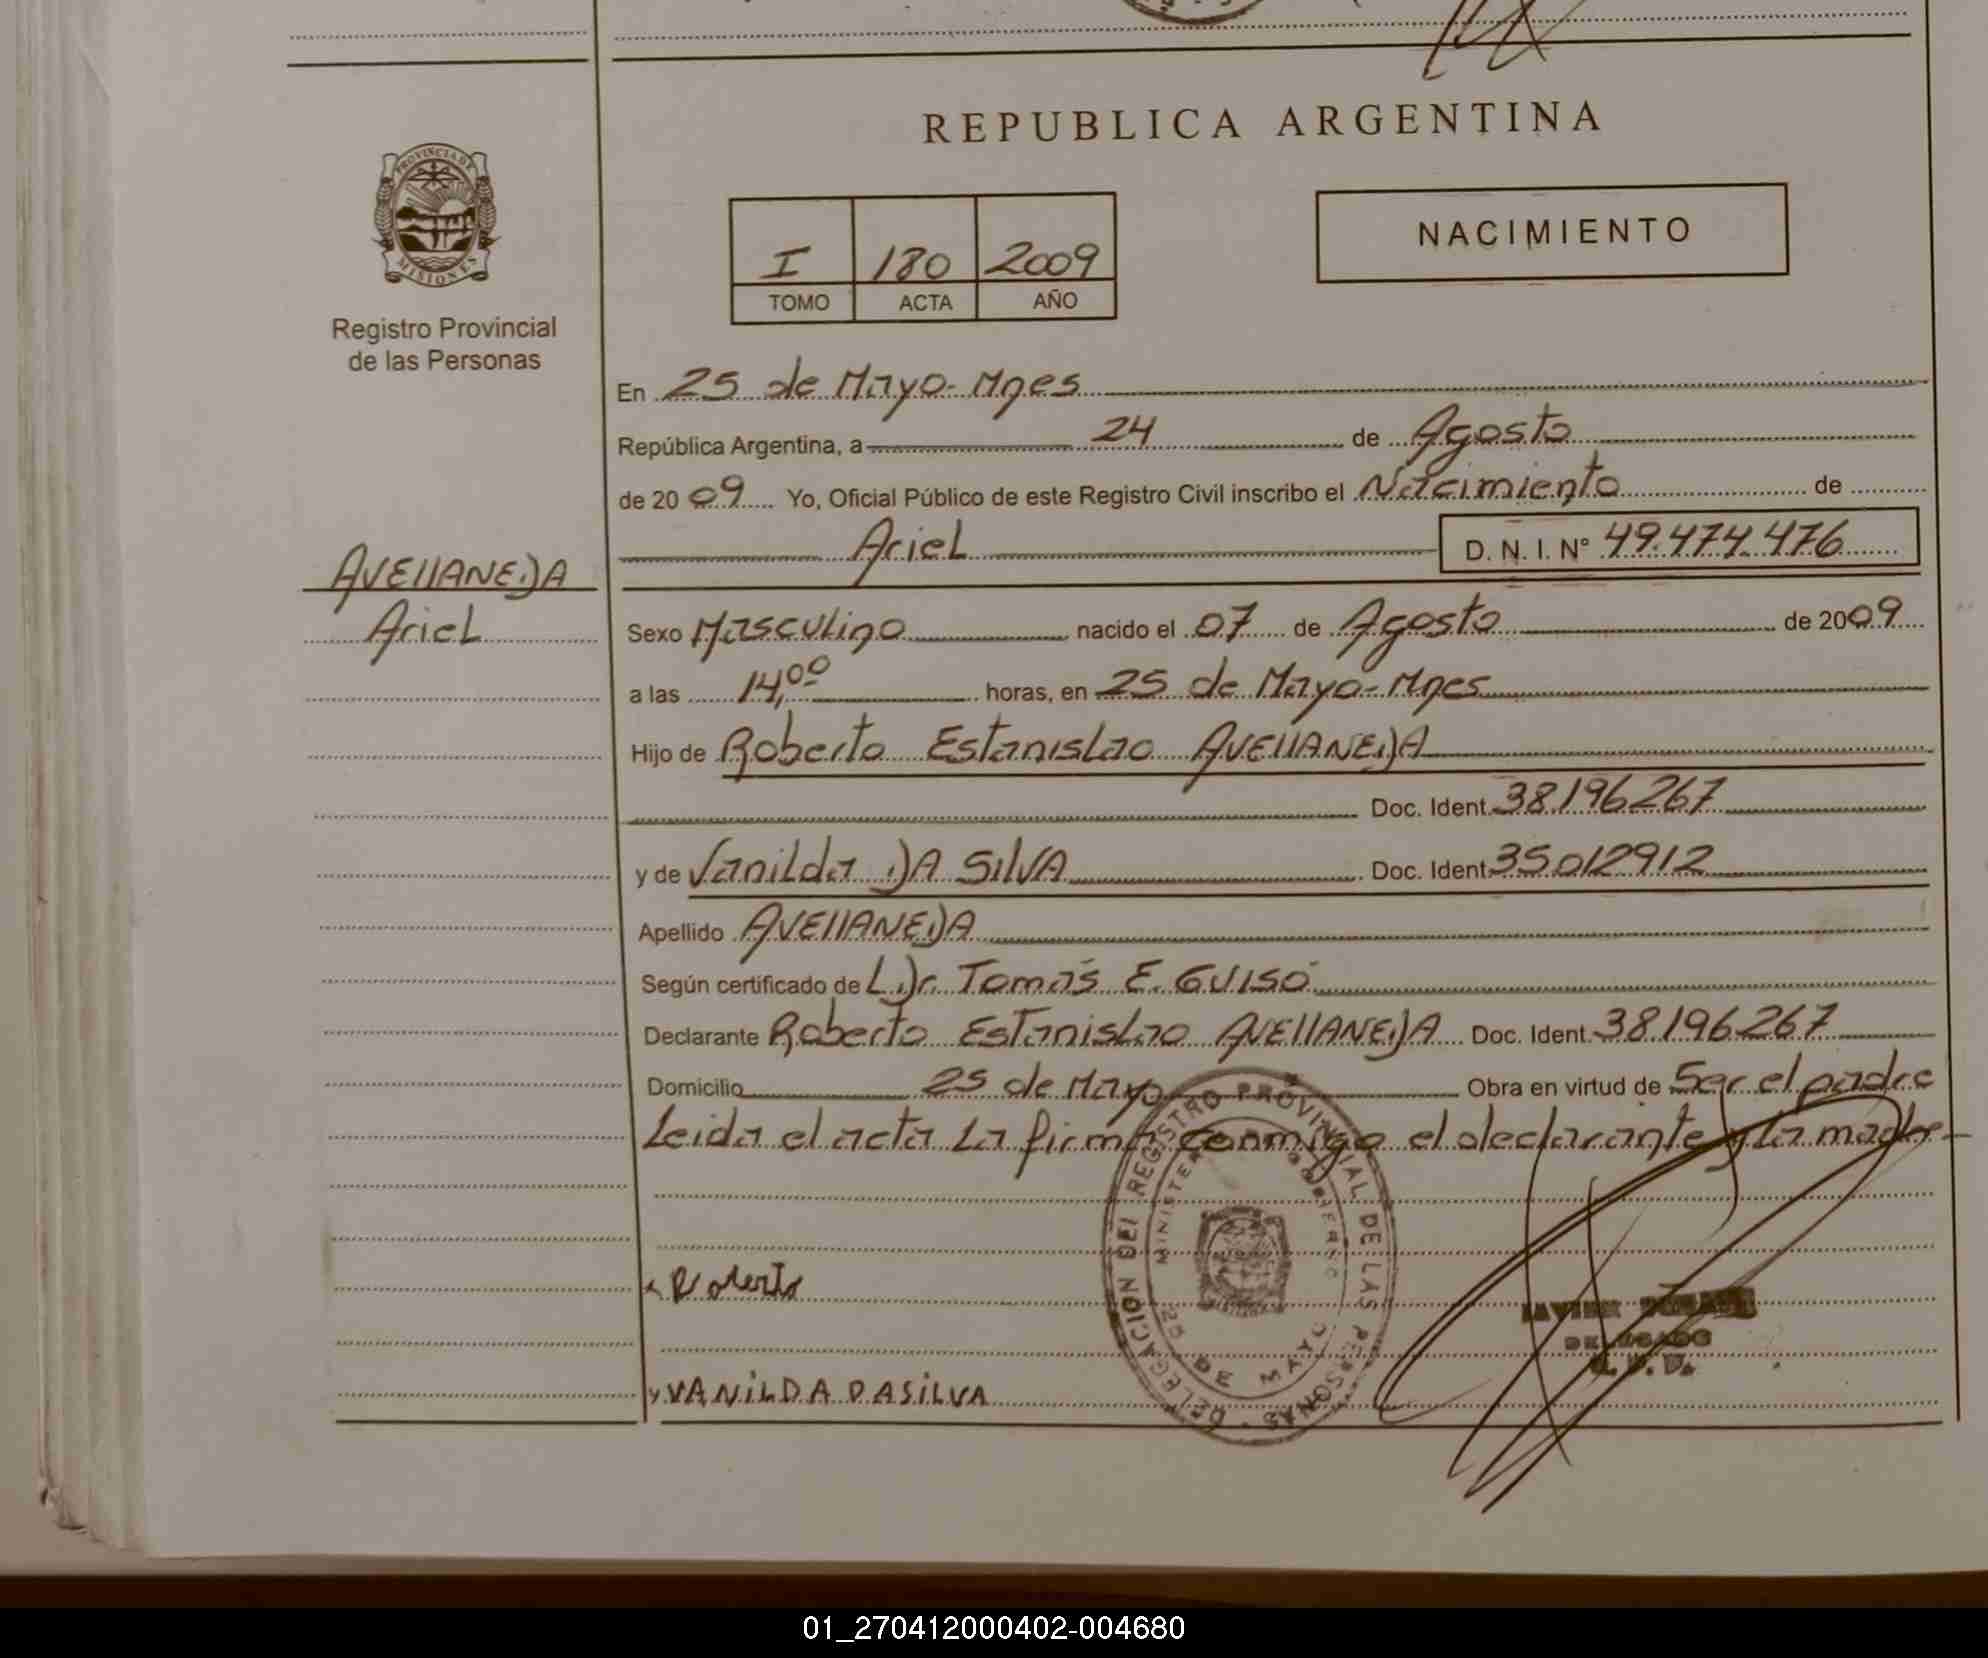 REPUBLICA ARGENTINA
PROVINCIA DE MISIONES
Registro Provincial
de las Personas
I 180 2009
TOMO ACTA AÑO
NACIMIENTO
En 25 de Mayo - Mnes
República Argentina, a 24 de Agosto
de 2009 Yo, Oficial Público de este Registro Civil inscribo el Nacimiento de
Ariel D. N. I. Nº 49.474.476
AVELLANEDA
Ariel
Sexo Masculino nacido el 07 de Agosto de 2009
a las 14,00 horas, en 25 de Mayo - Mnes
Hijo de Roberto Estanislao AVELLANEDA
Doc. Ident. 38.196.267
y de Vanilda DA SILVA Doc. Ident. 35.012.912
Apellido AVELLANEDA
Según certificado de L Dr. Tomás E. GUISO
Declarante Roberto Estanislao AVELLANEDA Doc. Ident. 38.196.267
Domicilio 25 de Mayo Obra en virtud de Ser el padre
Leida el acta La firma conmigo el declarante y la madre
DELEGACION DEL REGISTRO PROVINCIAL DE LAS PERSONAS
MINISTERIO GOBIERNO
25 DE MAYO
Roberto
JAVIER
DELEGADO
VANILDA DASILVA
01_270412000402-004680